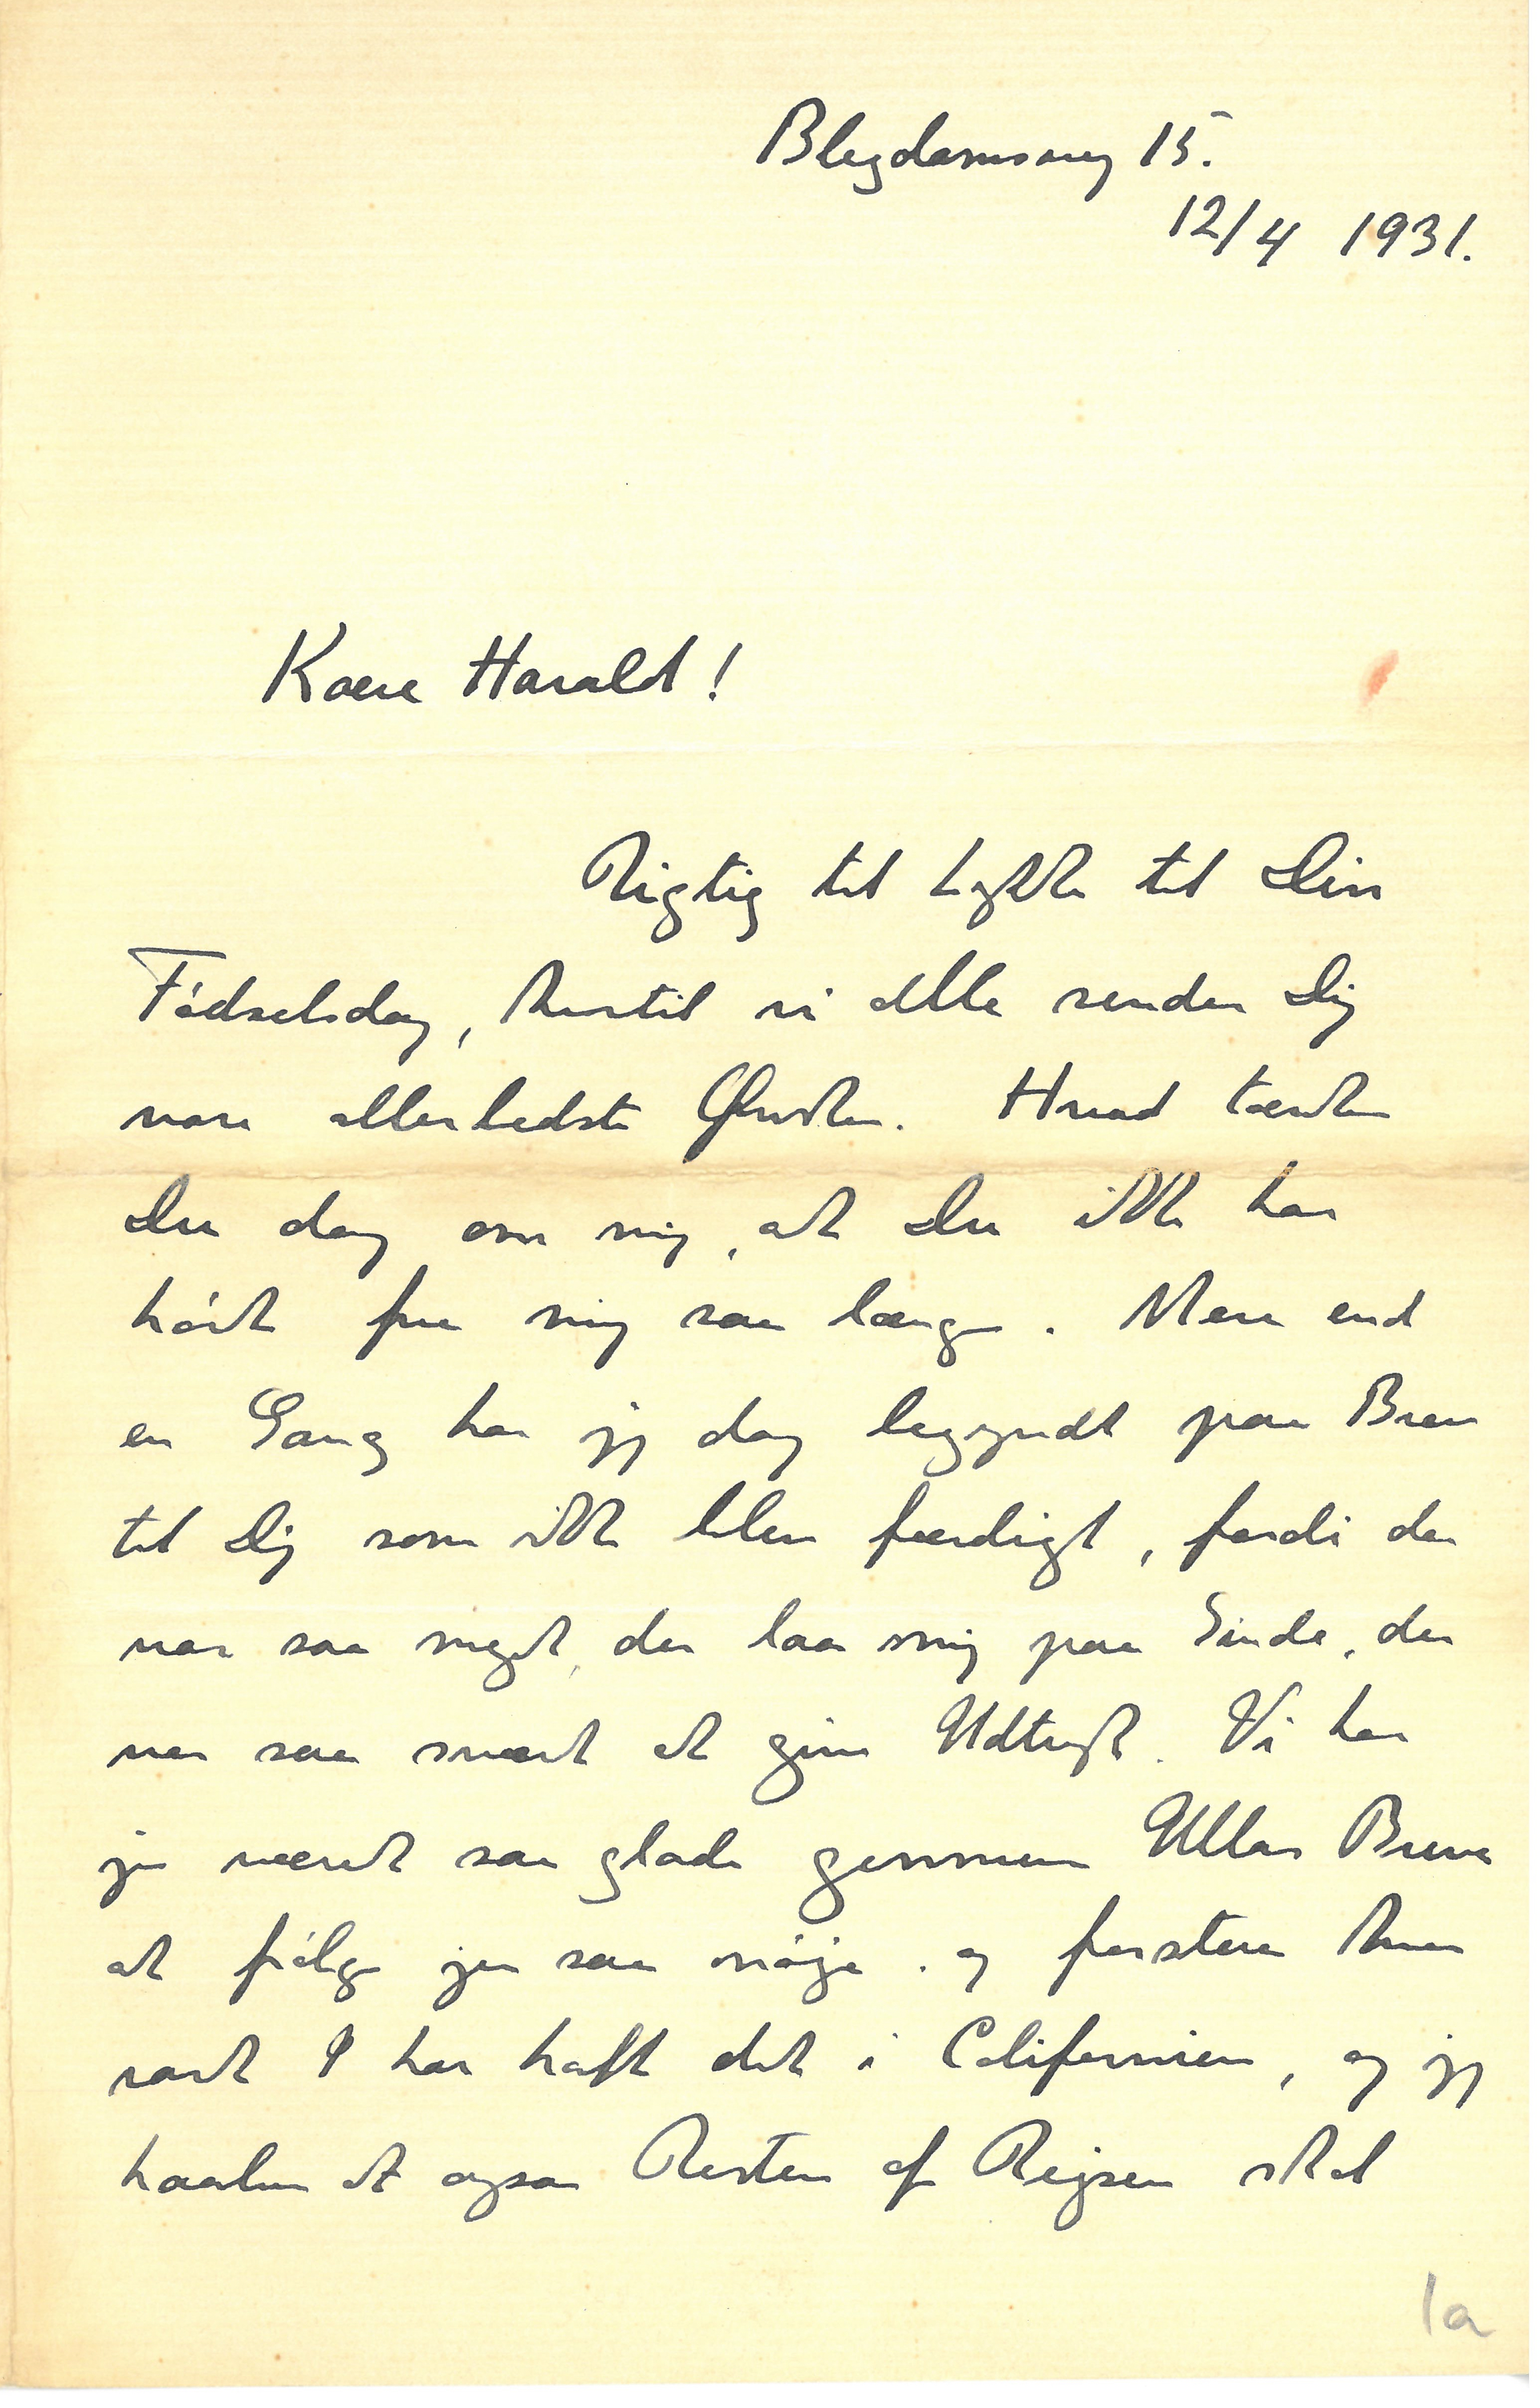 Blegdamsvej 15.
12/4 1931.
Kære Harald!
Rigtig til Lykke til Din
Fødselsdag, hvortil vi alle sender Dig
vore allerbedste Ønsker. Hvad tænker
Du dog om mig, at Du ikke har
hørt fra mig saa længe. Mere end
en Gang har jeg dog begyndt paa Brev
til Dig som ikke blev færdigt, fordi der
var saa meget, der laa mig paa Sinde, der
var saa svært at give Udtryk. Vi har
jo været saa glade gennem Ullas Breve
at følge jer saa nøje og forstaa hvor
rart I har haft det i Californien, og jeg
haaber at ogsaa Resten af Rejsen skal
1a